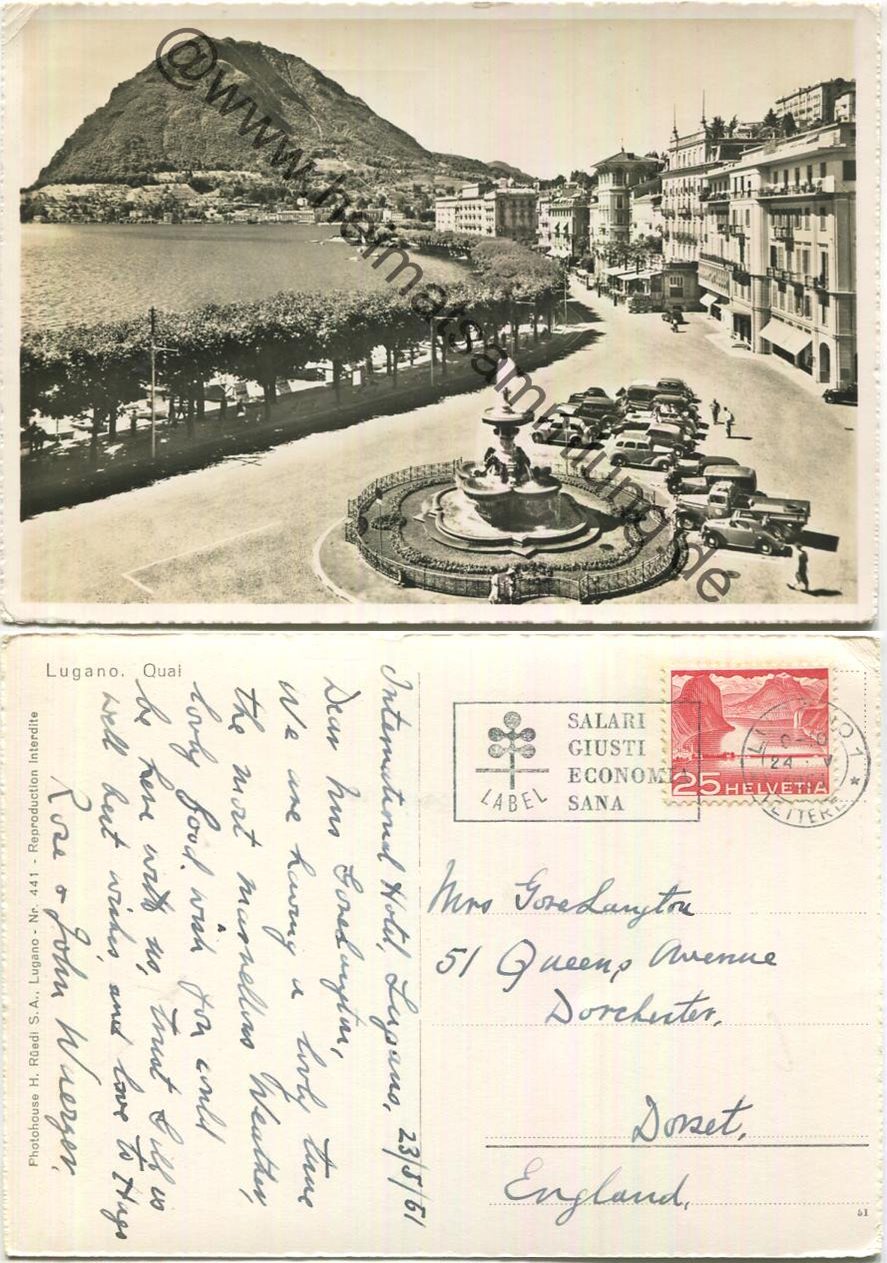 @www.heimatsammlung.de
Lugano. Quai
Photohouse H. Rüedi S. A., Lugano - Nr. 441 - Reproduction Interdite
International Hotel, Lugano, 23/5/61
Dear Mrs GoreLangton,
We are having a lovely time
the most marvellous Weather,
lovely food. wish you could
be here with us, trust Gill is
well best wishes, and love to Hugo
Rose & John Wuerger,
SALARI
GIUSTI
ECONOMIA
SANA
LABEL
25 HELVETIA
24 V
LETTERE
Mrs GoreLangton
51 Queens Avenue
Dorchester,
Dorset,
England,
51